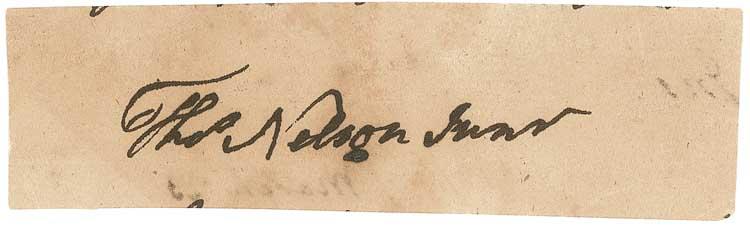 Thos Nelson Junr